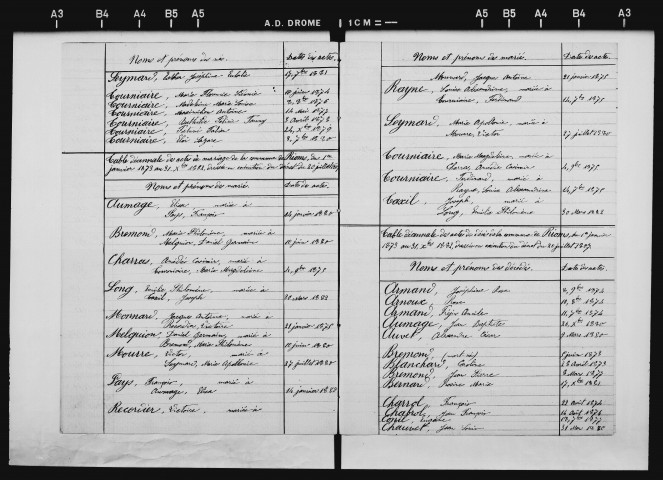 A3 B4 A4 B5 A5 A.D. DROME 1 CM = A5 B5 A4 B4 A3
Noms et prénoms des nés. Dates des actes.
Soymard, Esther Joséphine 17 7bre 1881
Courniaire, Marie 10 juin 1874
Courniaire, Madeleine Marie Louise 2 9bre 1876
Courniaire, Maximilien Antoine 14 1877
Courniaire, Fanny 8 Avril 1878
Courniaire, 24 1879
Courniaire, 2 7bre 1880
Table décennale des actes de mariage de la commune de Rioms, du 1er
janvier 1873 au 31 Xbre 1882, dressée en exécution du décret du 20 juillet 1807.
Noms et prénoms des mariés. Dates des actes.
Aumage, Elisa mariée à
Pays, François 24 janvier 1880
Bremond, Marie Philomène, mariée à
Melquion, Daniel Germain 10 juin 1880
Charras, Amédée Casimir, marié à
Courniaire, Marie Magdeleine 4 9bre 1875
Long, Emilie Philomène, mariée à
Coxil, Joseph 30 Mars 1882
Monnard, Jacques Antoine, marié à
Recordier, Victoire 21 janvier 1875
Melquion, Daniel Germain, marié à
Bremond, Marie Philomène 10 juin 1880
Mourre, Victor, marié à
Soymard, Marie Apollonie 27 juillet 1880
Pays, François, marié à
Aumage, Elisa 24 janvier 1880
Recordier, Victoire, mariée à
Noms et prénoms des mariés. Dates des actes.
Monnard, Jacques Antoine 21 janvier 1875
Rayne, Louise Alexandrine, mariée à
Courniaire, Ferdinand 14 7bre 1875
Soymard, Marie Apollonie, mariée à
Mourre, Victor 27 juillet 1880
Courniaire, Marie Magdeleine, mariée à
Charras, Amédée Casimir 4 9bre 1875
Courniaire, Ferdinand, marié à
Rayne, Louise Alexandrine 14 7bre 1875
Coxil, Joseph, marié à
Long, Emilie Philomène 30 Mars 1882
Table décennale des actes de décès de la commune de Rioms, du 1er janvier
1873 au 31 Xbre 1882, dressée en exécution du décret du 20 juillet 1807.
Noms et prénoms des décédés. Dates des actes.
Armand, Joséphine Rose 2 9bre 1874
Arnoux, Rose 10 1874
Armand, 16 7bre 1874
Aumage, Jean Baptiste 26 Xbre 1880
Auvet, Alexandre 9 Mars 1880
Bremond, mort né 5 juin 1873
Blanchard, 23 Avril 1873
Bremond, Jean Pierre 8 Mars 1877
Bernard, Marie 17 Xbre 1881
Charrol, François 22 Avril 1874
Charrol, Jean François 14 Avril 1874
19 7bre 1877
Chauvet, Jean Louis 31 Mars 1880